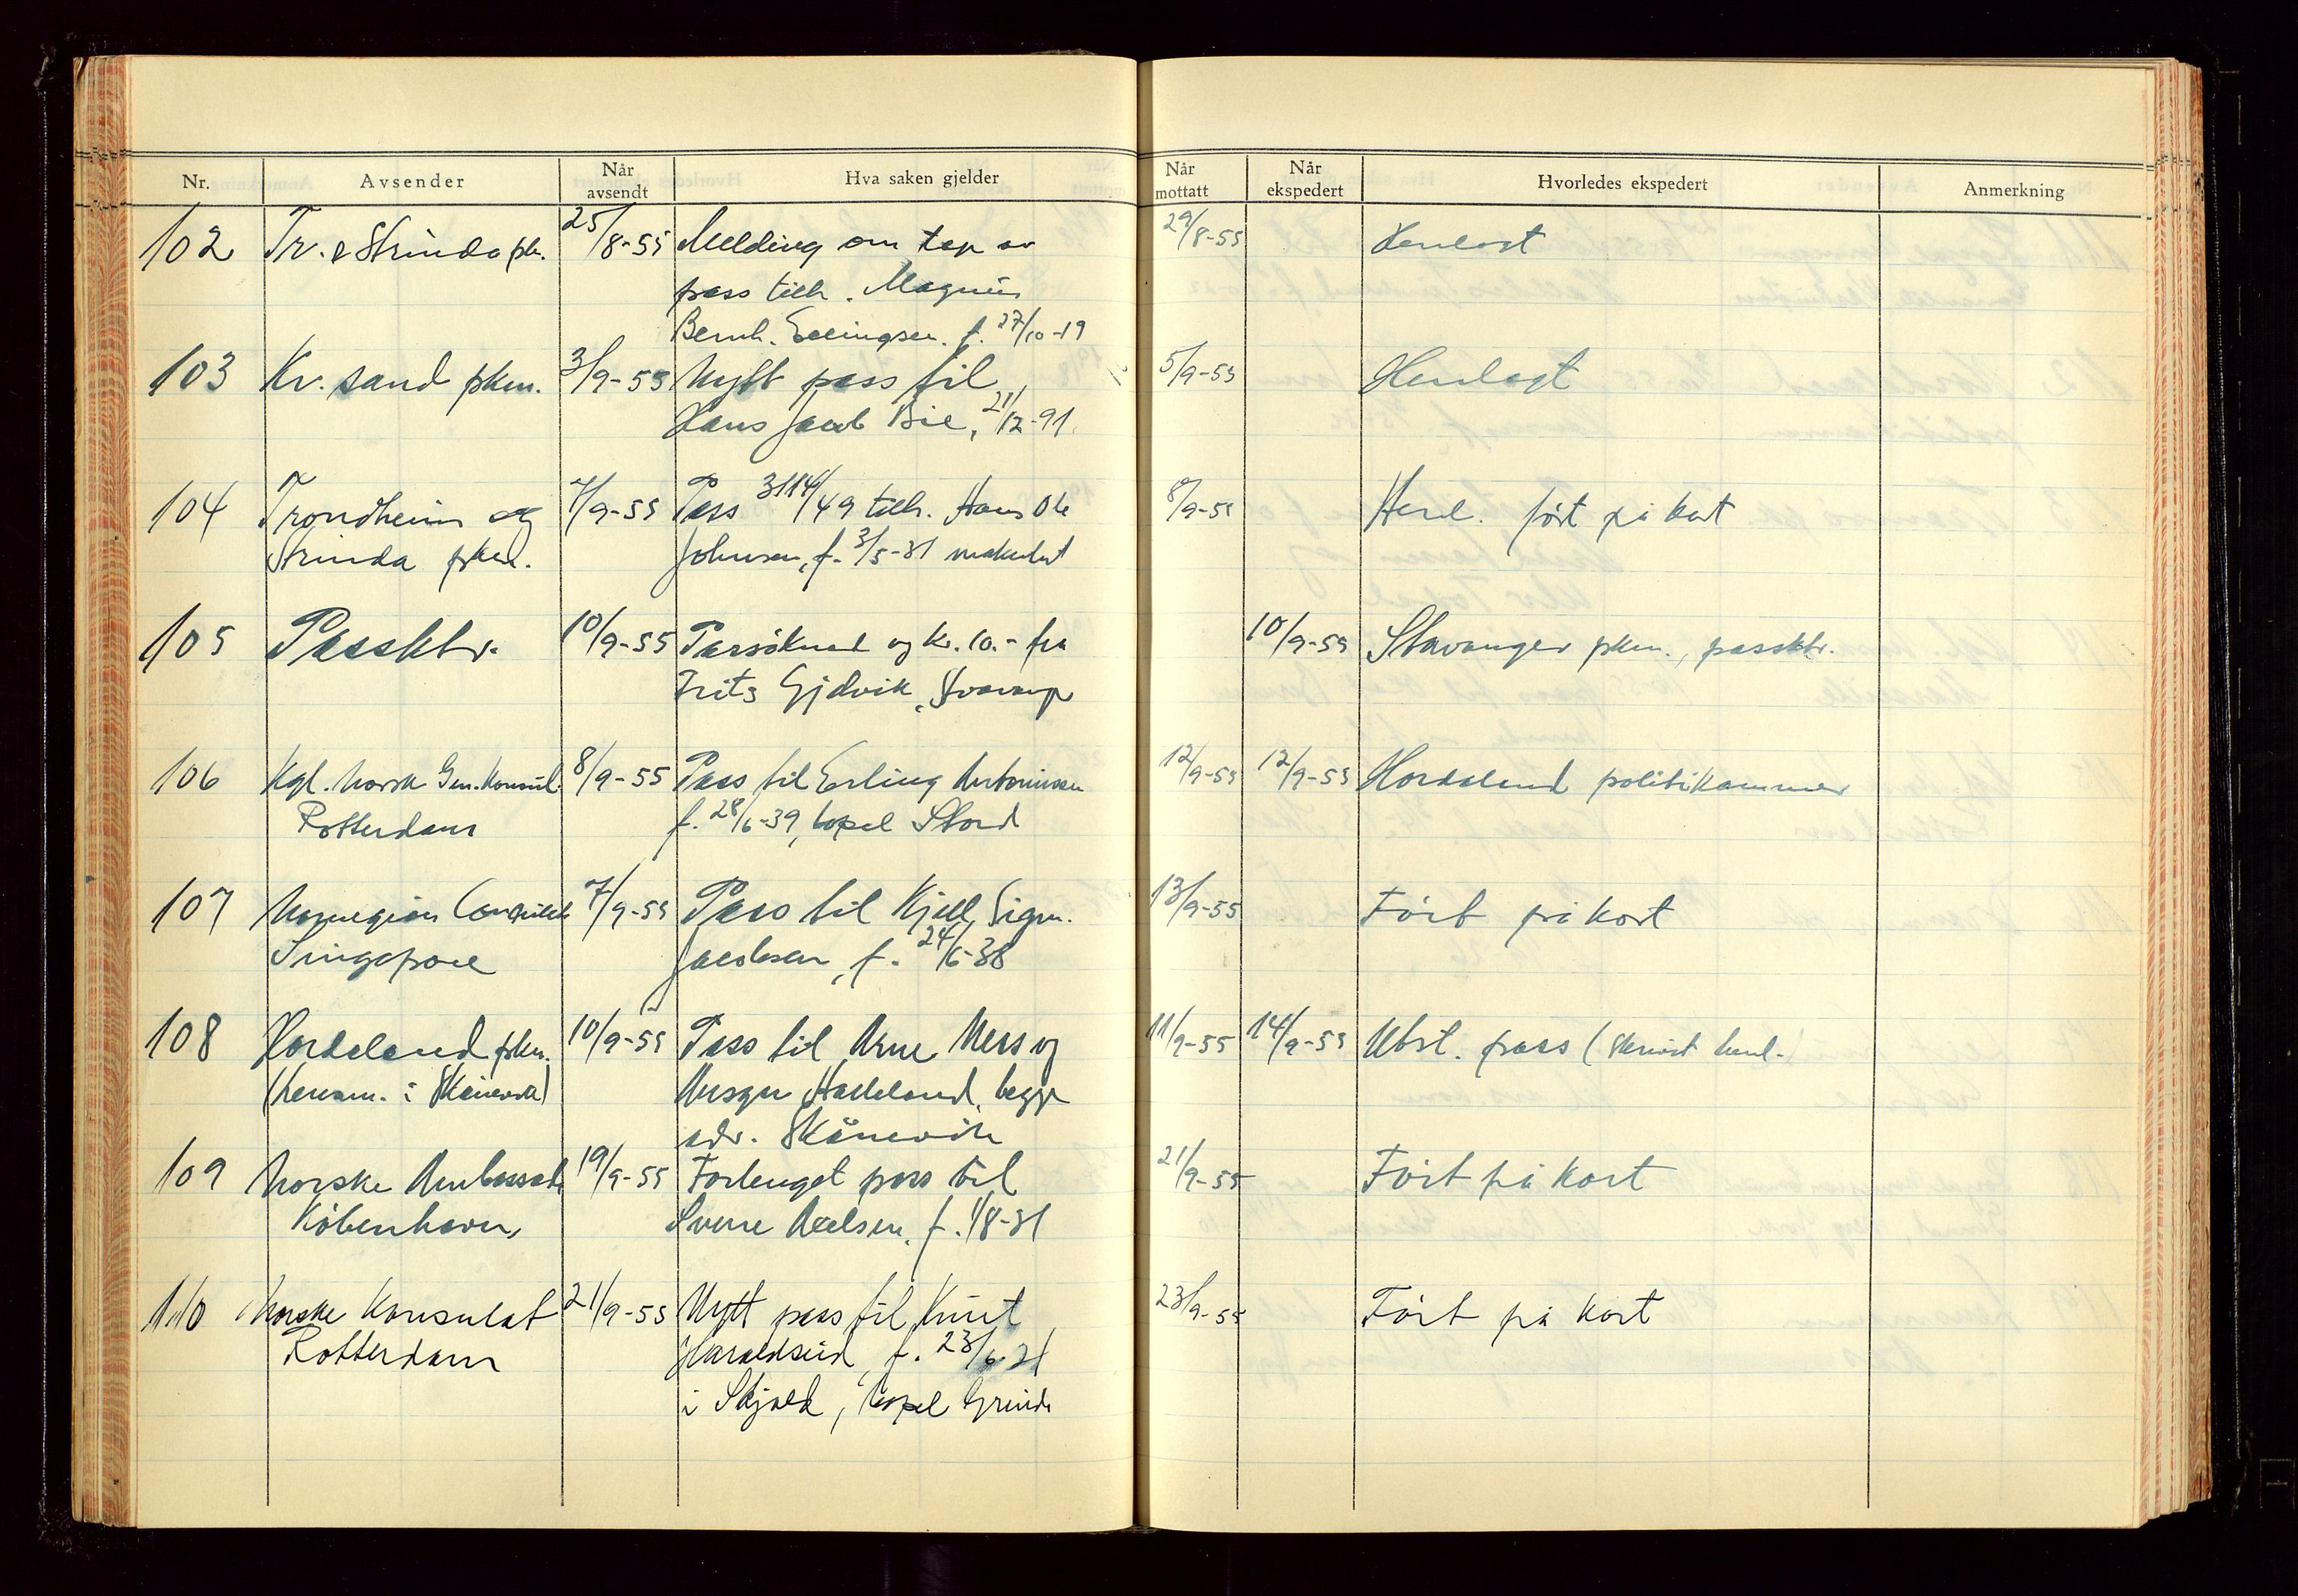 Nr. Avsender Når avsendt Hva saken gjelder Når mottatt Når ekspedert Hvorledes ekspedert Anmerkning
102 Tr. & Strinda pk. 25/8-55 Melding om tap av 29/8-55 Henlagt
pass tilh. Magnus
Bernh. Ellingsen. f. 27/10-19
103 Kr. sand pkm. 3/9-55 Nytt pass til 5/9-55 Henlagt
Hans Jacob Bie, 21/12-91.
104 Trondheim og 7/9-55 Pass 3114/49 tilh. Hans Ole 8/9-55 Henl. ført på kort
Strinda pkm. Johnsen, f. 3/5-31 makulert
105 Passktr. 10/9-55 Passöknad og kr. 10.- fra 10/9-55 Stavanger pkm., passktr.
Frits Gjdvik,
106 Kgl. Norsk Gen.Konsul. 8/9-55 Pass til Erling Antonisen 12/9-55 12/9-55 Hordaland politikammer
Rotterdam f. 28/6-39, bopel Stord
107 Norwegian Consulate 7/9-55 Pass til Kjell Sigm. 13/9-55 Ført på kort
Singapore Jacobsen, f. 24/6-38
108 Hordaland pkm. 10/9-55 Pass til Arne Ness og 11/9-55 14/9-55 Utst. pass (skrivet henl.)
(Lensm. i Skånevik) Halleland, begge
adr. Skånevik
109 Norske Ambassade 19/9-55 Forlenget pass til 21/9-55 Ført på kort
København, Sverre Nielsen, f. 1/8-31
110 Norske Konsulat 21/9-55 Nytt pass til Knut 23/9-55 Ført på kort
Rotterdam Haraldseid, f. 23/6-21
i Skjold, bopel Grinde